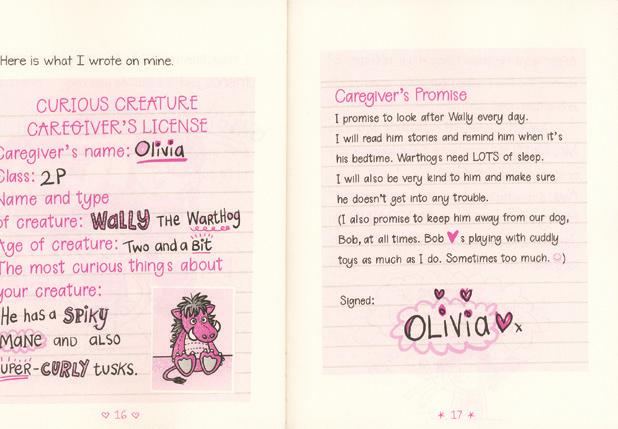 Here is what I wrote on mine.
CURIOUS CREATURE
CAREGIVER'S LICENSE
Caregiver's name: Olivia
Class: 2P
Name and type
of creature: WALLY THE WARTHOG
Age of creature: Two and a Bit
The most curious things about
your creature:
He has a SPIKY
MANE AND also
SUPER-CURLY TUSKS.
16
Caregiver's Promise
I promise to look after Wally every day.
I will read him stories and remind him when it's
his bedtime. Warthogs need LOTS of sleep.
I will also be very kind to him and make sure
he doesn't get into any trouble.
(I also promise to keep him away from our dog,
Bob, at all times. Bob ♥s playing with cuddly
toys as much as I do. Sometimes too much. ☺)
Signed:
OLiVia x
17